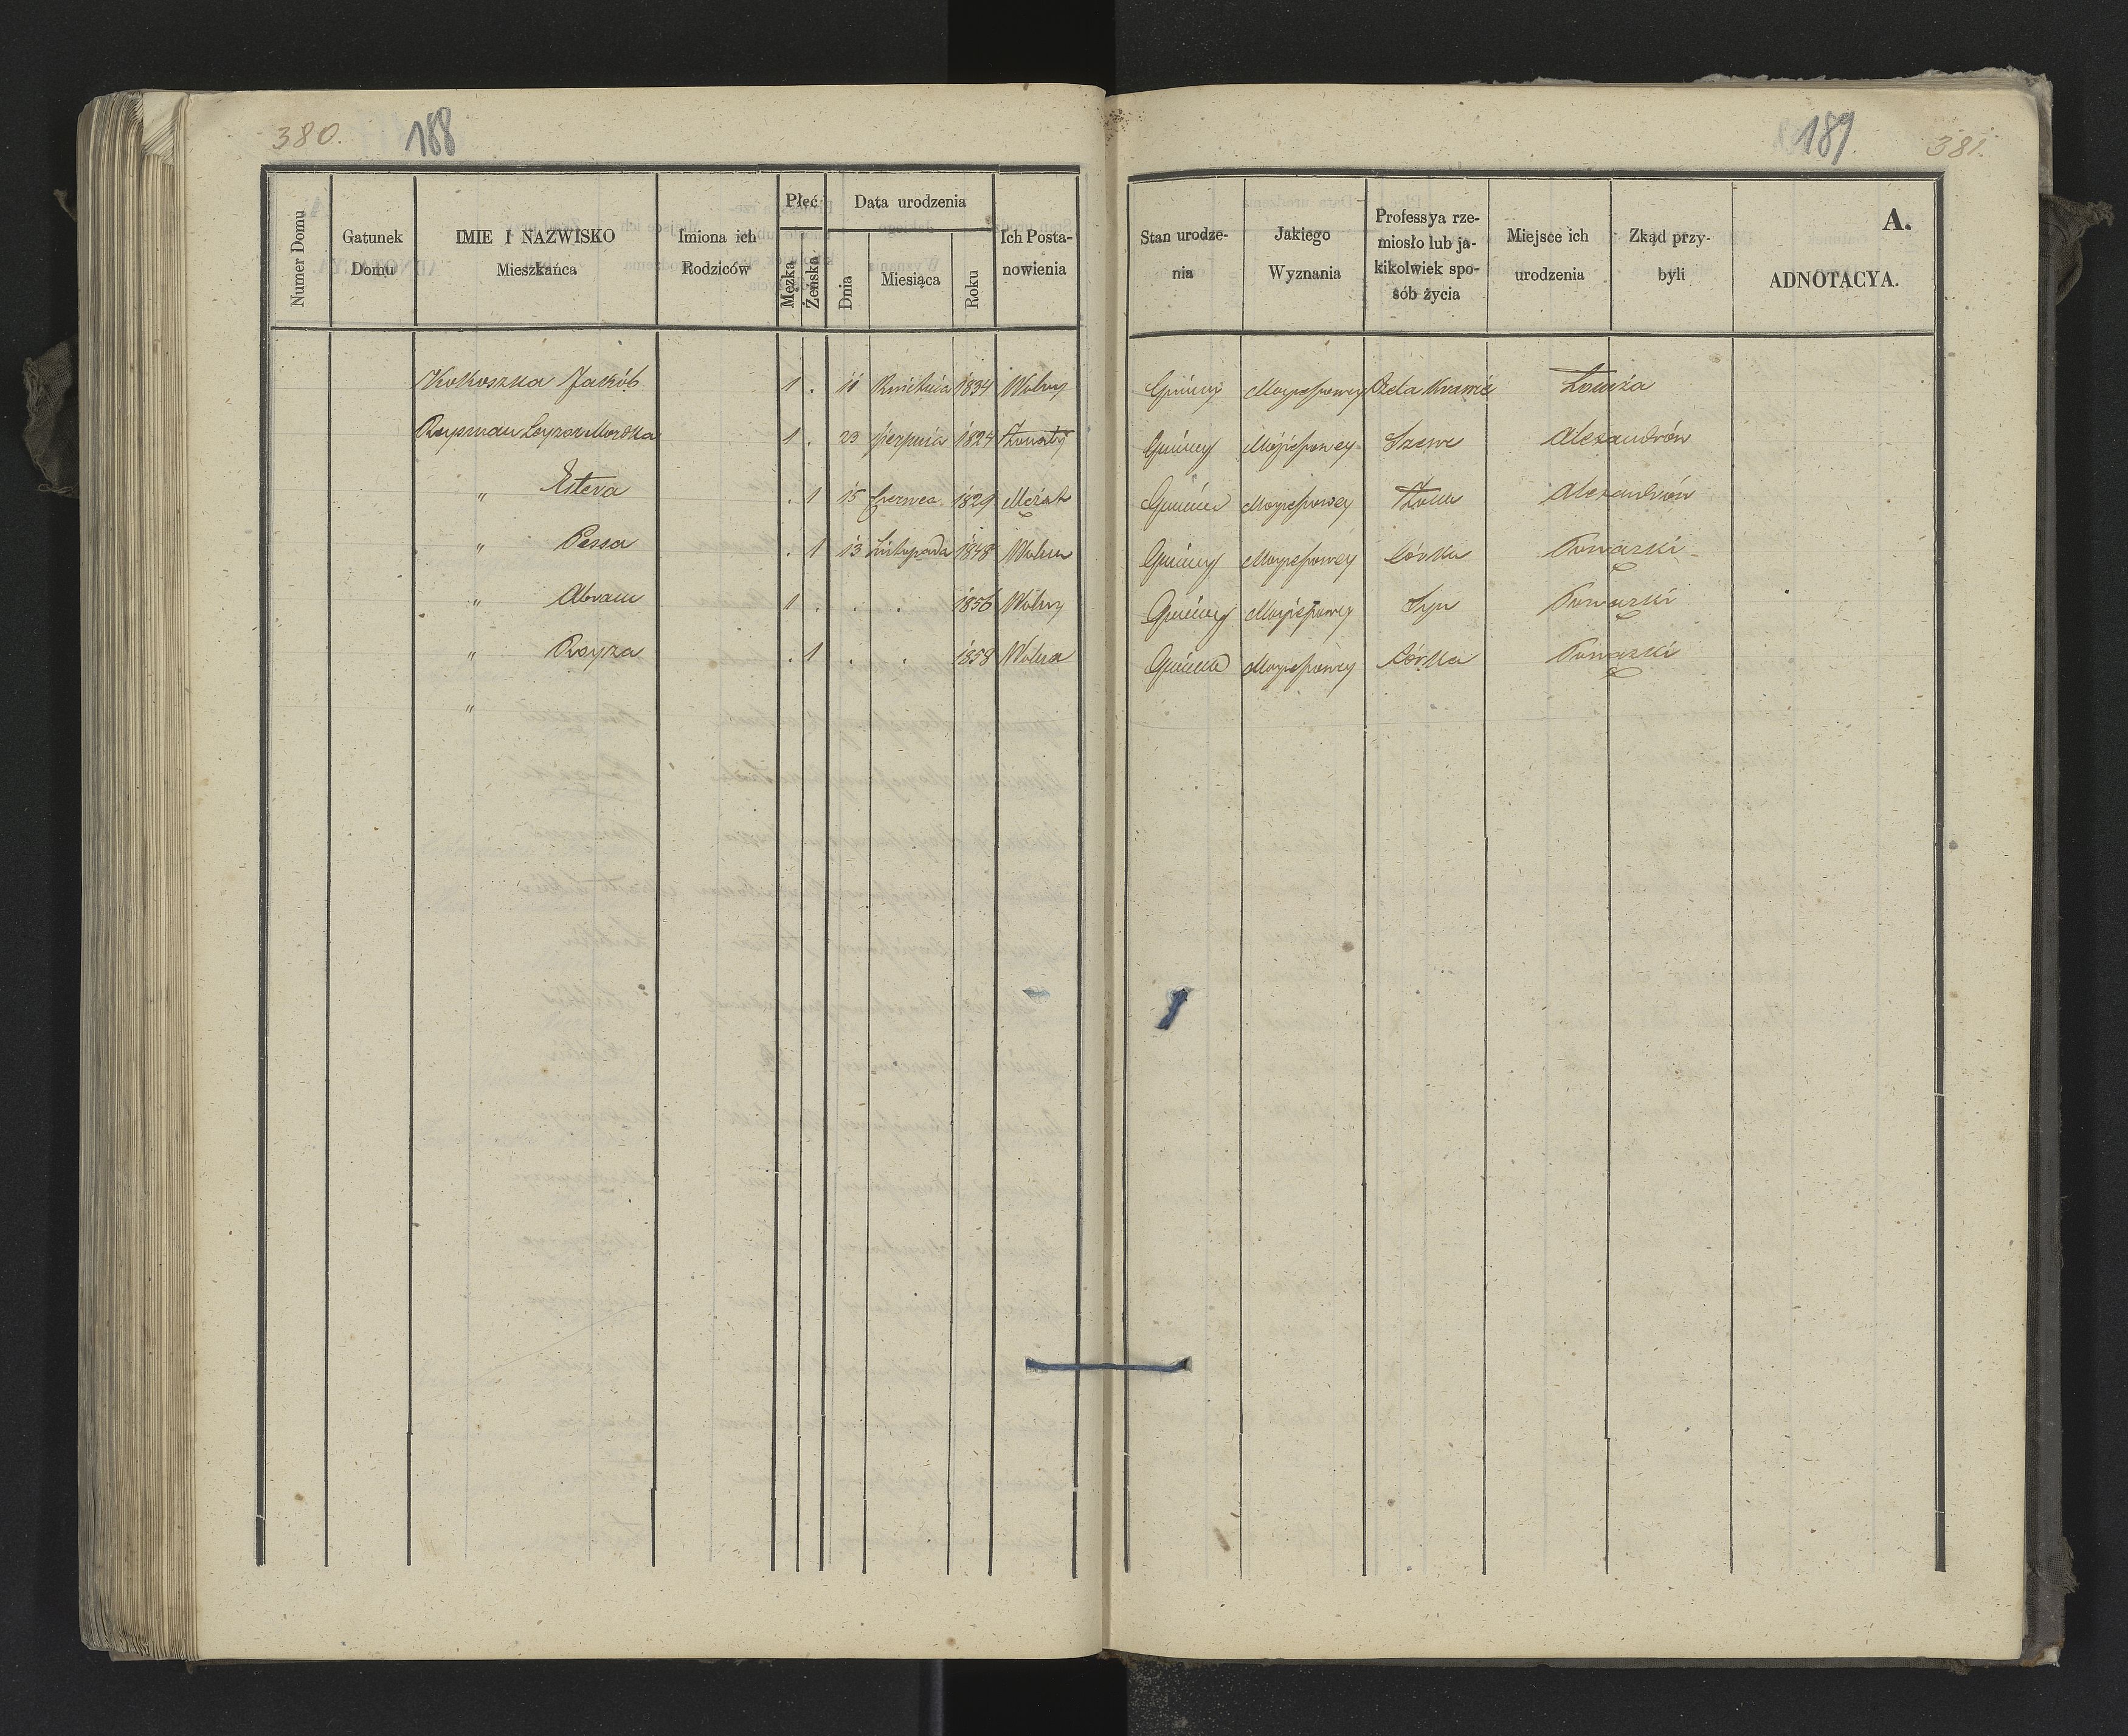 380. 188
Numer Domu
Gatunek Domu
IMIE I NAZWISKO Mieszkańca
Imiona ich Rodziców
Płeć
Męzka
Żeńska
Data urodzenia
Dnia
Miesiąca
Roku
Ich Posta-
nowienia
Kokoszka Jakób 1 . 11 Kwietnia 1834 Wolny
Leyzor Mordka 1 . 23 1824 Żonaty
" Estera . 1 15 Czerwca 1829 Mężat
" Pessa . 1 13 Listopada 1848 Wolna
" Abram 1 . . . 1856 Wolny
" Royza . 1 . . 1858 Wolna
"
189. 381.
Stan urodze-
nia
Jakiego
Wyznania
Professya rze-
miosło lub ja-
kikolwiek spo-
sób życia
Miejsce ich
urodzenia
Zkąd przy-
byli
A.
ADNOTACYA.
Gminny Mojżeszowey Łomża
Gminny Mojżeszowey Szewc Alexandrów
Gminna Mojżeszowey Żona Alexandrów
Gminny Mojżeszowey Córka Powązki
Gminny Mojżeszowey Syn Powązki
Gminna Mojżeszowey Córka Powązki